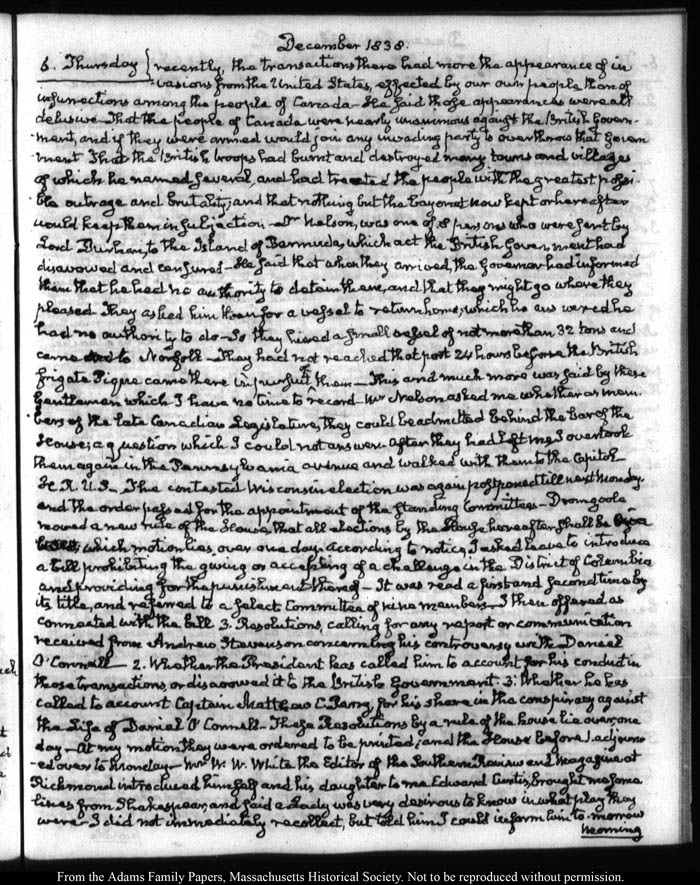 December 1838.
6. Thursday { recently, the transactions there had more the appearance of in
vasions from the United States, effected by our own people than of
insurrections among the people of Canada – He said those appearances were all
delusive – That the people of Canada were nearly unanimous against the British Govern-
-ment, and if they were armed would join any invading party to overthrow that Govern
-ment That the British troops had burnt and destroyed many towns and villages
of which he named several, and had treated the people with the greatest possi-
-ble outrage and brutality; and that nothing but the bayonet now kept or hereafter
would keep them in subjection – Dr Nelson, was one of 8 persons who were sent by
Lord Durham, to the Island of Bermuda, which act the British Government had
disavowed and censured – He said that when they arrived, the Governor had informed
them that he had no authority to detain them, and that they might go where they
pleased – They asked him then for a vessel to return home, which he answered he
had no authority to do – So they hired a small vessel of not more than 32 tons and
came to Norfolk – They had not reached that port 24 hours before the British
frigate Pique came there in pursuit of them – This and much more was said by these
Gentlemen which I have no time to record – Mr Nelson asked me whether as mem-
-bers of the late Canadian Legislature, they could be admitted behind the bar of the
House; a question which I could not answer. After they had left me I overtook
them again in the Pennsylvania avenue and walked with them to the Capitol –
H. R. U. S. The contested Wisconsin election was again postponed till next Monday.
and the order passed for the appointment of the Standing Committees – Dromgoole
moved a new rule of the House that all elections by the House hereafter shall be viva
which motion lies over one day. According to notice, I asked leave to introduce
a bill prohibiting the giving or accepting of a challenge in the District of Columbia
and providing for the punishment thereof – It was read a first and second time by
its title, and referred to a select Committee of nine members – I then offered as
connected with the bill 3. Resolutions, calling for any report or communication
received from Andrew Stevenson concerning his controversy with Daniel
O'Connell – 2. Whether the President has called him to account for his conduct in
those transactions, or disavowed it to the British Government. 3: Whether he has
called to account Captain Matthew C. Perry, for his share in the conspiracy against
the Life of Daniel O'Connell – These Resolutions by a rule of the house lie over one
day – At my motion they were ordered to be printed; and the House before 1. adjourn
-ed over to Monday – Mr W. W. White the Editor of the Southern Review and Magazine at
Richmond introduced himself and his daughter to me Edward Curtis, brought me some
lines from Shakespear, and said a Lady was very desirous to know in what play they
were – I did not immediately recollect, but told him I could inform him to-morrow
morning
From the Adams Family Papers, Massachusetts Historical Society. Not to be reproduced without permission.